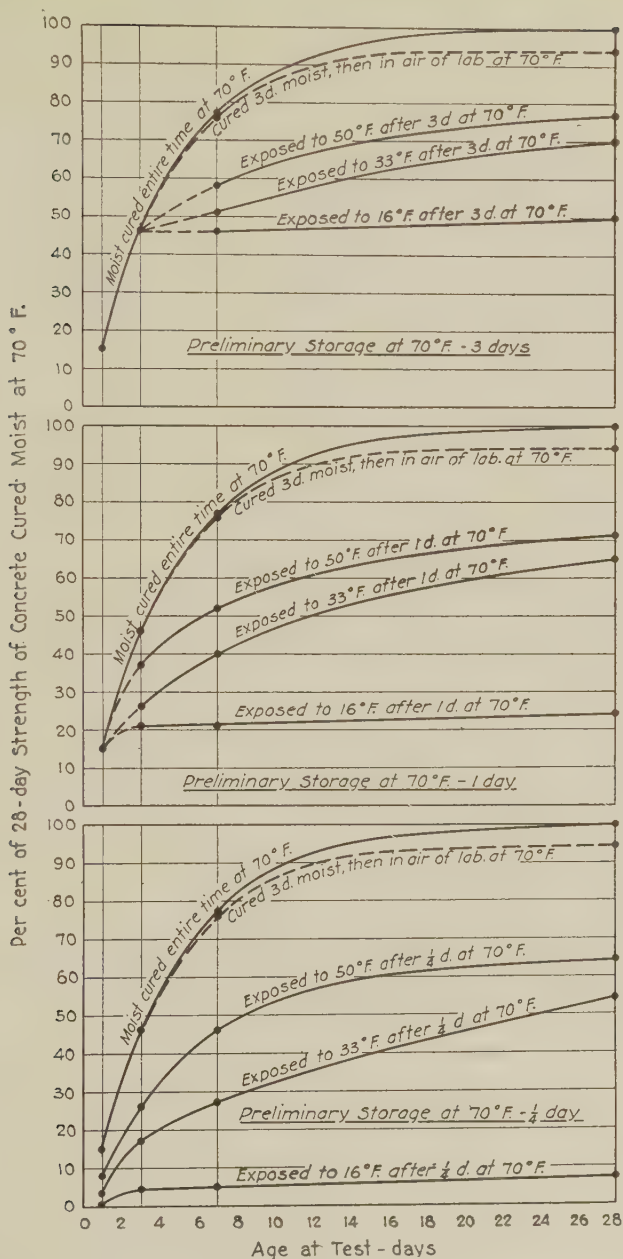 Per cent of 28-day Strength of Concrete Cured Moist at 70° F.
100
90
80
70
60
50
40
30
20
10
0
Moist cured entire time at 70° F.
Cured 3d. moist, then in air of lab. at 70° F.
Exposed to 50° F. after 3 d. at 70° F.
Exposed to 33° F. after 3 d. at 70° F.
Exposed to 16° F. after 3 d. at 70° F.
Preliminary Storage at 70° F. - 3 days
100
90
80
70
60
50
40
30
20
10
0
Moist cured entire time at 70° F.
Cured 3d. moist, then in air of lab. at 70° F.
Exposed to 50° F. after 1 d. at 70° F.
Exposed to 33° F. after 1 d. at 70° F.
Exposed to 16° F. after 1 d. at 70° F.
Preliminary Storage at 70° F. - 1 day
100
90
80
70
60
50
40
30
20
10
0
Moist cured entire time at 70° F.
Cured 3d. moist, then in air of lab. at 70° F.
Exposed to 50° F. after ¼ d. at 70° F.
Exposed to 33° F. after ¼ d at 70° F.
Preliminary Storage at 70° F. - ¼ day
Exposed to 16° F. after ¼ d. at 70° F.
0 2 4 6 8 10 12 14 16 18 20 22 24 26 28
Age at Test - days